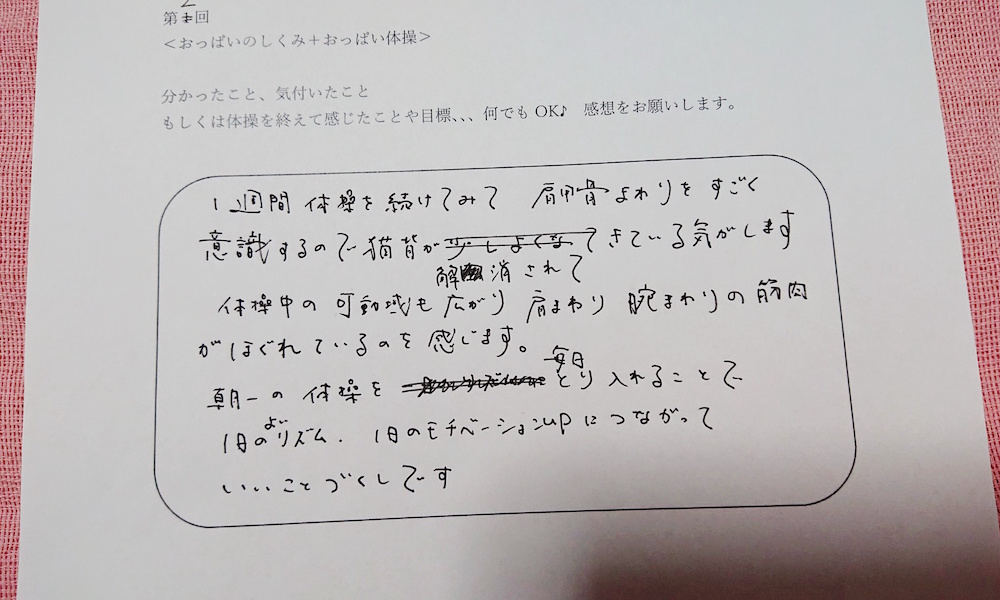 第2回
<おっぱいのしくみ+おっぱい体操>
分かったこと、気付いたこと
もしくは体操を終えて感じたことや目標、、、何でも OK♪ 感想をお願いします。
1週間 体操を続けてみて 肩甲骨まわりを すごく
意識するので猫背が少しよくなてきている気がします
解消されて
体操中の 可動域も 広がり 肩まわり 腕まわりの筋肉
がほぐれているのを感じます。
毎日
朝一の 体操を とり入れることで
よい
1日のリズム. 1日のモチベーションupにつながって
いいことづくしです